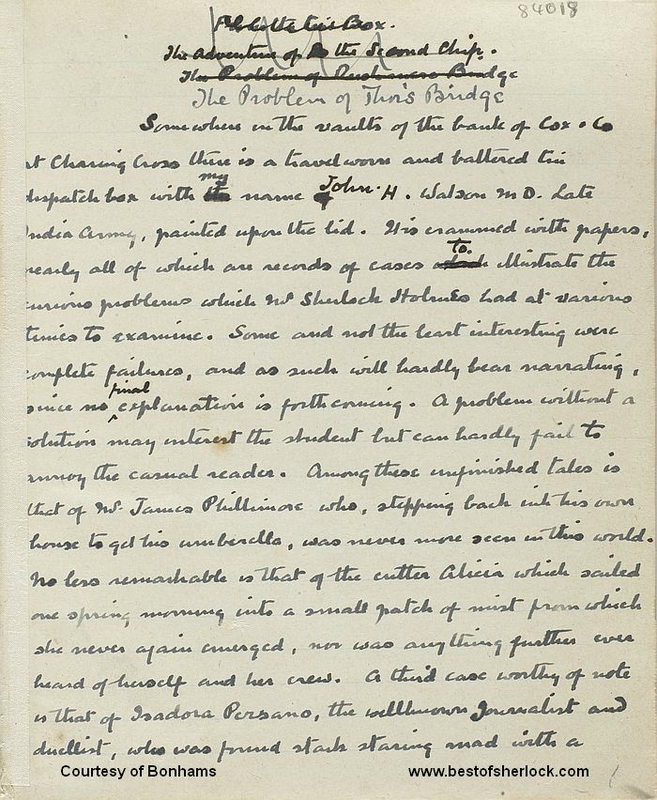 84018
the tin Box.
The Adventure of the Second Chip.
The Problem of Rushmere Bridge
The Problem of Thor's Bridge
Somewhere in the vaults of the bank of Cox & Co
at Charing Cross there is a travel worn and battered tin
dispatch box with my name John. H. Watson M D. Late
India Army, painted upon the lid. It is crammed with papers,
nearly all of which are records of cases to illustrate the
curious problems which Mr Sherlock Holmes had at various
times to examine. Some and not the least interesting were
complete failures, and as such will hardly bear narrating,
since no final explanation is forthcoming. A problem without a
solution may interest the student but can hardly fail to
annoy the casual reader. Among these unfinished tales is
that of Mr James Phillimore who, stepping back into his own
house to get his umberella, was never more seen in this world.
No less remarkable is that of the cutter Alicia which sailed
one spring morning into a small patch of mist from which
she never again emerged, nor was anything further ever
heard of herself and her crew. A third case worthy of note
is that of Isadora Persano, the wellknown Journalist and
duellist, who was found stark staring mad with a
Courtesy of Bonhams
www.bestofsherlock.com